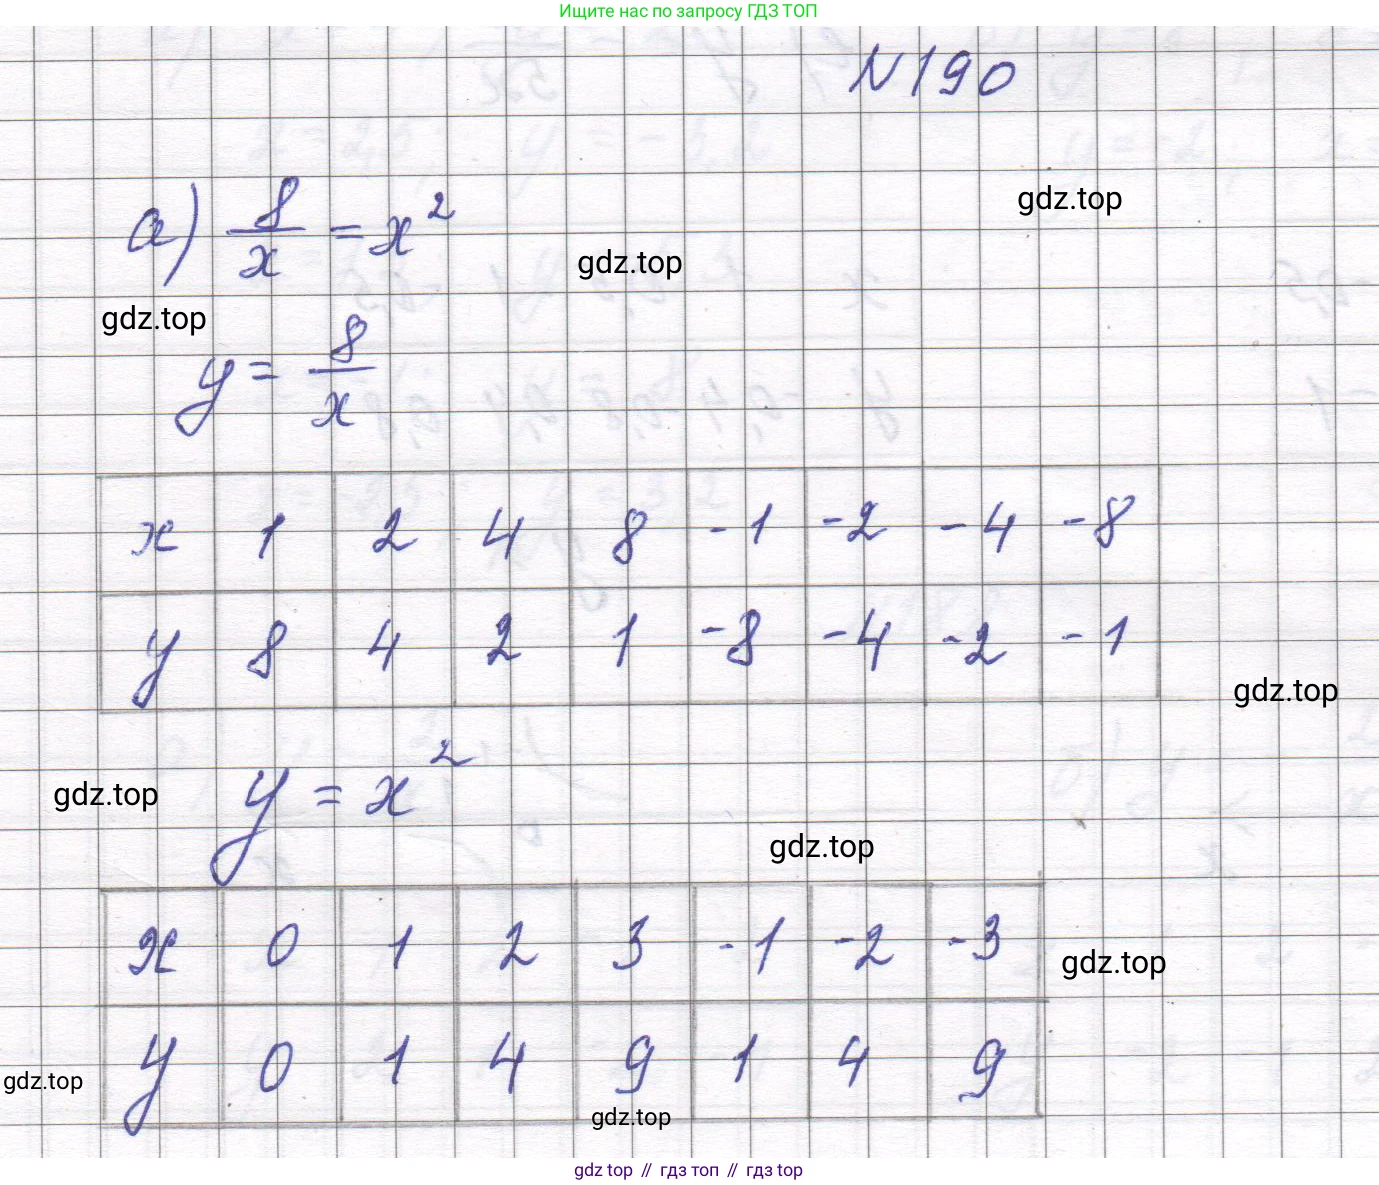 Ищите нас по запросу ГДЗ ТОП
N 190
gdz.top
а) 8/x = x²
gdz.top
gdz.top
y = 8/x
x 1 2 4 8 -1 -2 -4 -8
y 8 4 2 1 -8 -4 -2 -1
gdz.top
y = x²
gdz.top
gdz.top
x 0 1 2 3 -1 -2 -3
gdz.top
y 0 1 4 9 1 4 9
gdz.top
gdz.top
gdz top // гдз топ // гдз top